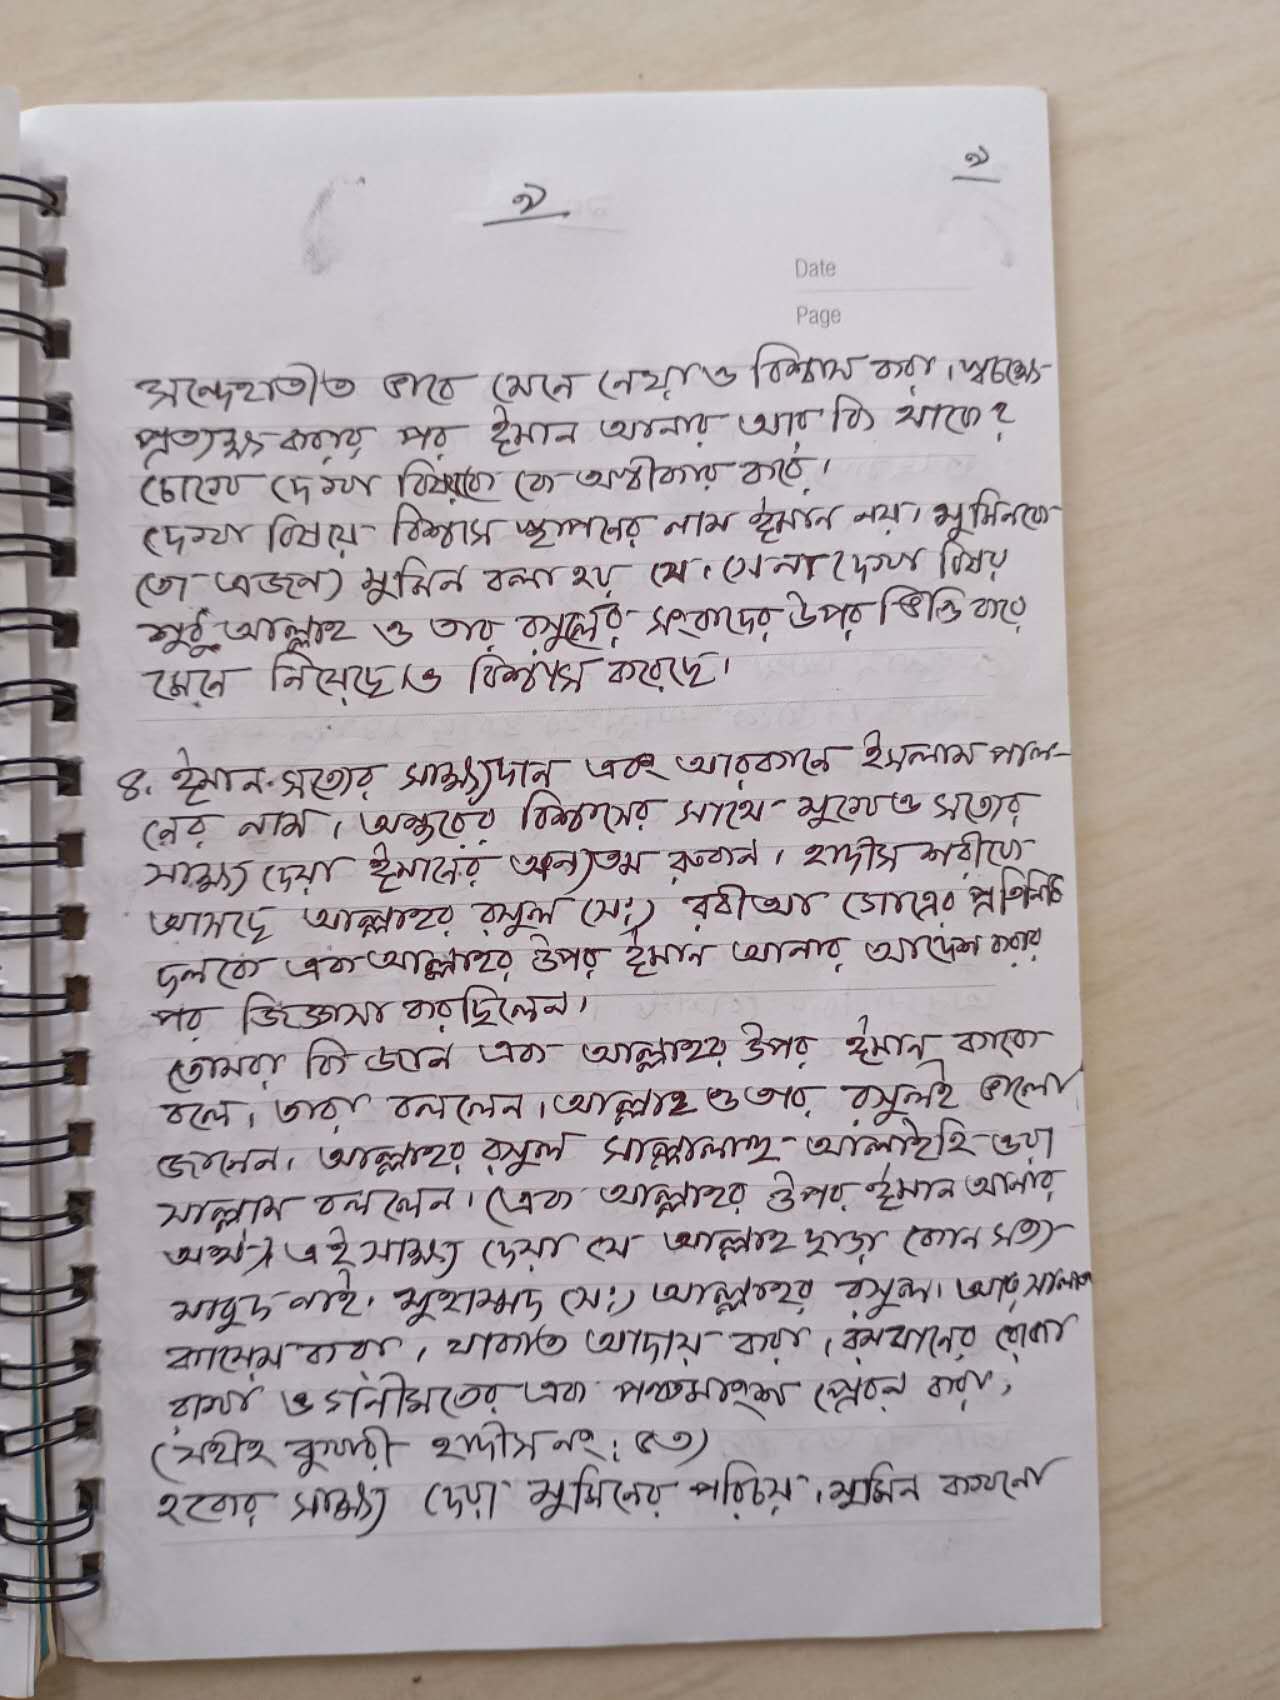 ৯
৯
Date
Page
সন্দেহাতীত ভাবে মেনে নেয়া ও বিশ্বাস করা। স্বচক্ষে
প্রত্যক্ষ করার পর ঈমান আনার আর কি থাকে?
চোখে দেখা বিষয়কে কে অস্বীকার করে।
দেখা বিষয়ে বিশ্বাস স্থাপনের নাম ঈমান নয়। মুমিনকে
তো এজন্য মুমিন বলা হয় যে, সে না দেখা বিষয়
শুধু আল্লাহ ও তার রসুলের সংবাদের উপর ভিত্তি করে
মেনে নিয়েছে ও বিশ্বাস করেছে।
৪. ঈমান সত্যের সাক্ষ্যদান এবং আরকানে ইসলাম পাল-
নের নাম। অন্তরের বিশ্বাসের সাথে মুখেও সত্যের
সাক্ষ্য দেয়া ঈমানের অন্যতম রুকন। হাদীস শরীফে
আসছে আল্লাহর রসুল (স:) রবীআ গোত্রের প্রতিনিধি
দলকে এক আল্লাহর উপর ঈমান আনার আদেশ করার
পর জিজ্ঞাসা করছিলেন।
তোমরা কি জান এক আল্লাহর উপর ঈমান কাকে
বলে। তারা বললেন। আল্লাহ ও তার রসুলই ভালো
জানেন। আল্লাহর রসুল সাল্লালাহু আলাইহি ওয়া
সাল্লাম বললেন। (এক আল্লাহর উপর ঈমান আনার
অর্থ) এই সাক্ষ্য দেয়া যে আল্লাহ ছাড়া কোন সত্য
মাবুদ নাই। মুহাম্মদ (স:) আল্লাহর রসুল। আর সালাত
কায়েম করা, যাকাত আদায় করা, রমযানের রোজা
রাখা ও গনীমতের এক পঞ্চমাংশ প্রেরন করা,
(সহীহ বুখারী হাদীস নং: ৫৩)
হকের সাক্ষ্য দেয়া মুমিনের পরিচয়। মুমিন কখনো